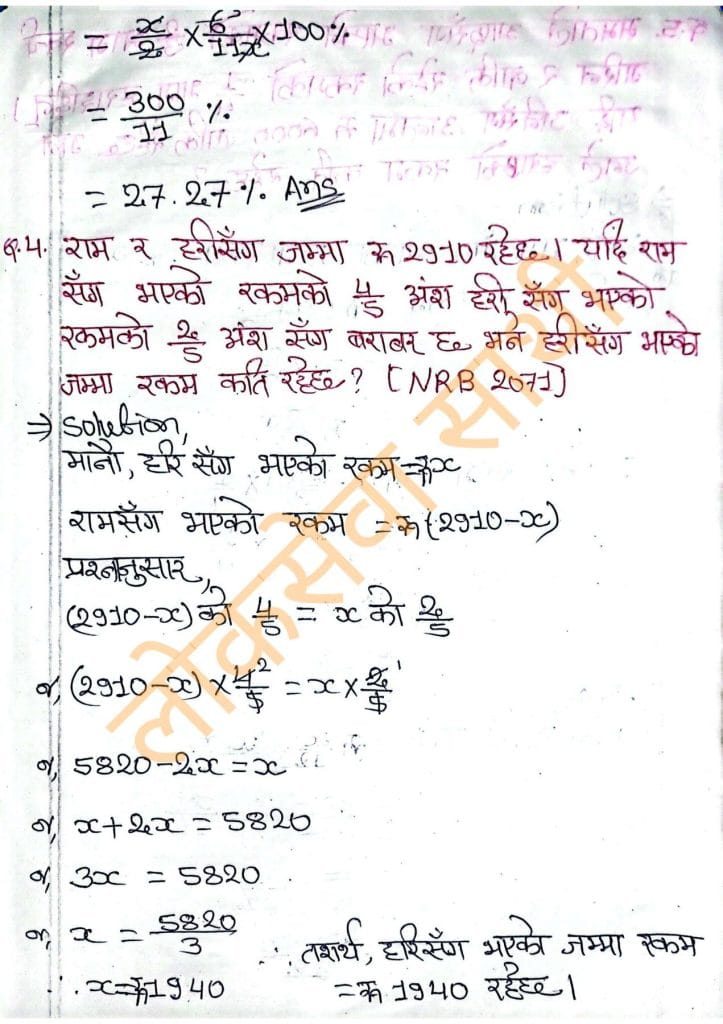 = x/2 × 6/11x × 100%
= 300/11 %
= 27.27% Ans
Q.4. राम र हरीसँग जम्मा रू 2910 रहेछ। यदि राम
सँग भएको रकमको 4/5 अंश हरी सँग भएको
रकमको 2/5 अंश सँग बराबर छ भने हरीसँग भएको
जम्मा रकम कति रहेछ? [NRB 2071]
⇒ Solution,
मानौ, हरि सँग भएको रकम = रू x
रामसँग भएको रकम = रू (2910-x)
प्रश्नानुसार,
(2910-x) को 4/5 = x को 2/5
or, (2910-x) × 4/5 2 = x × 2/5 1
or, 5820-2x = x
or, x+2x = 5820
or, 3x = 5820
or, x = 5820/3
∴ x = रू 1940
∴ तसर्थ, हरिसँग भएको जम्मा रकम
= रू 1940 रहेछ।
लोकसेवा साथी